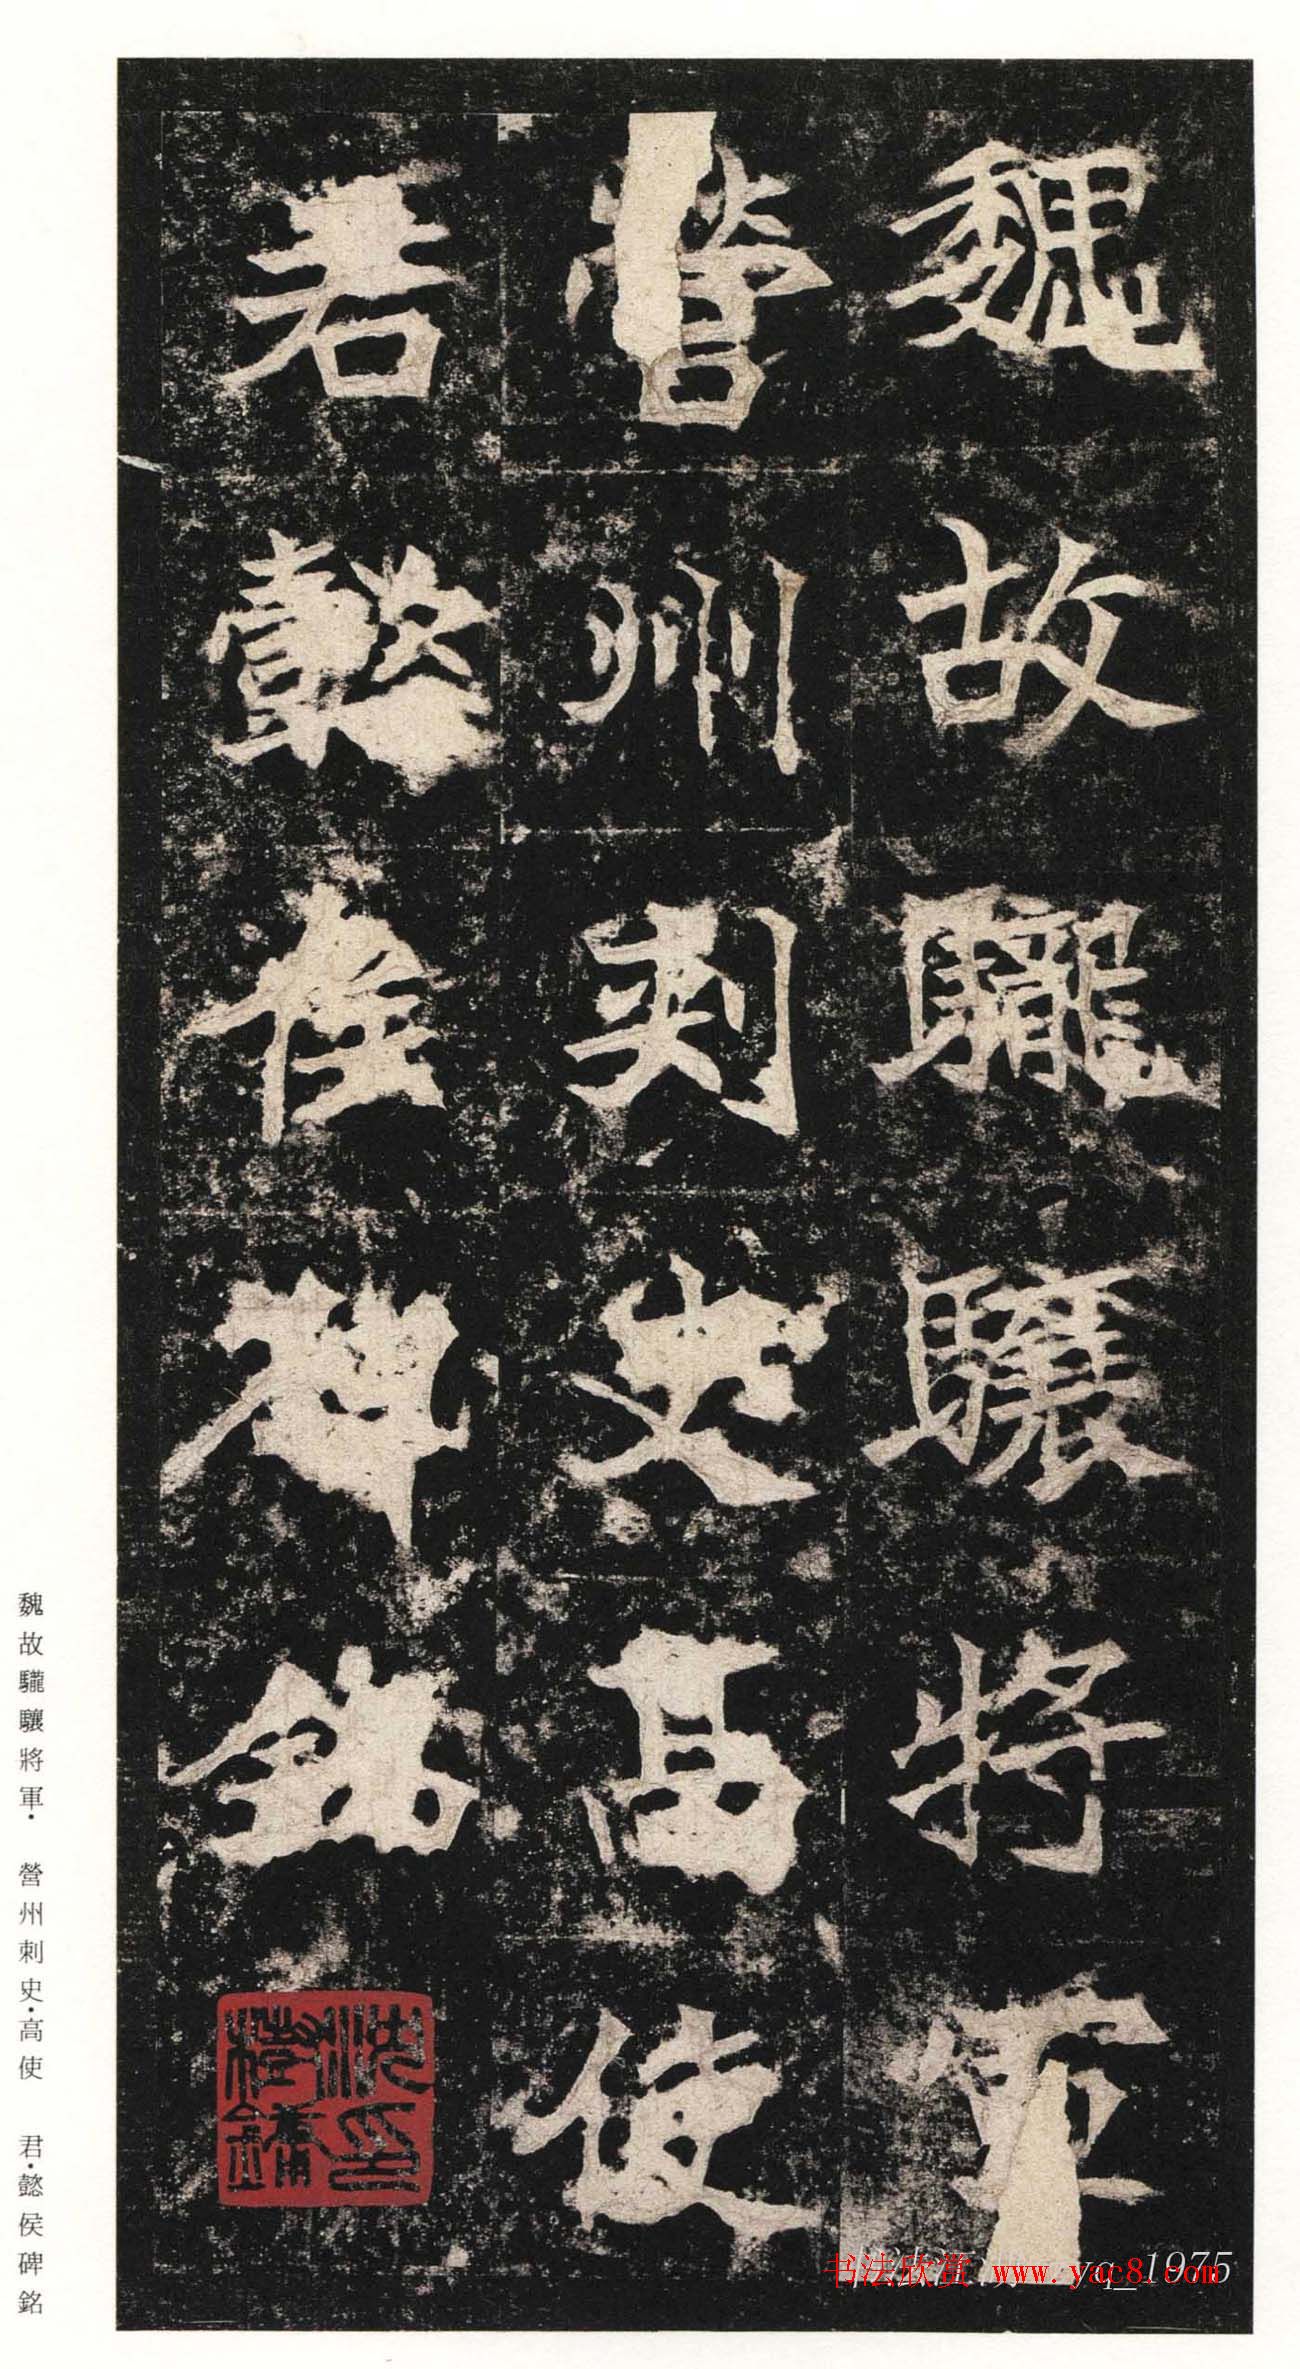 魏故驡驤將軍
營州刺史高使
君懿侯碑銘
魏故驡驤將軍· 營州刺史·高使 君·懿侯碑銘
書法欣赏 www.yac8.com
yq_1975